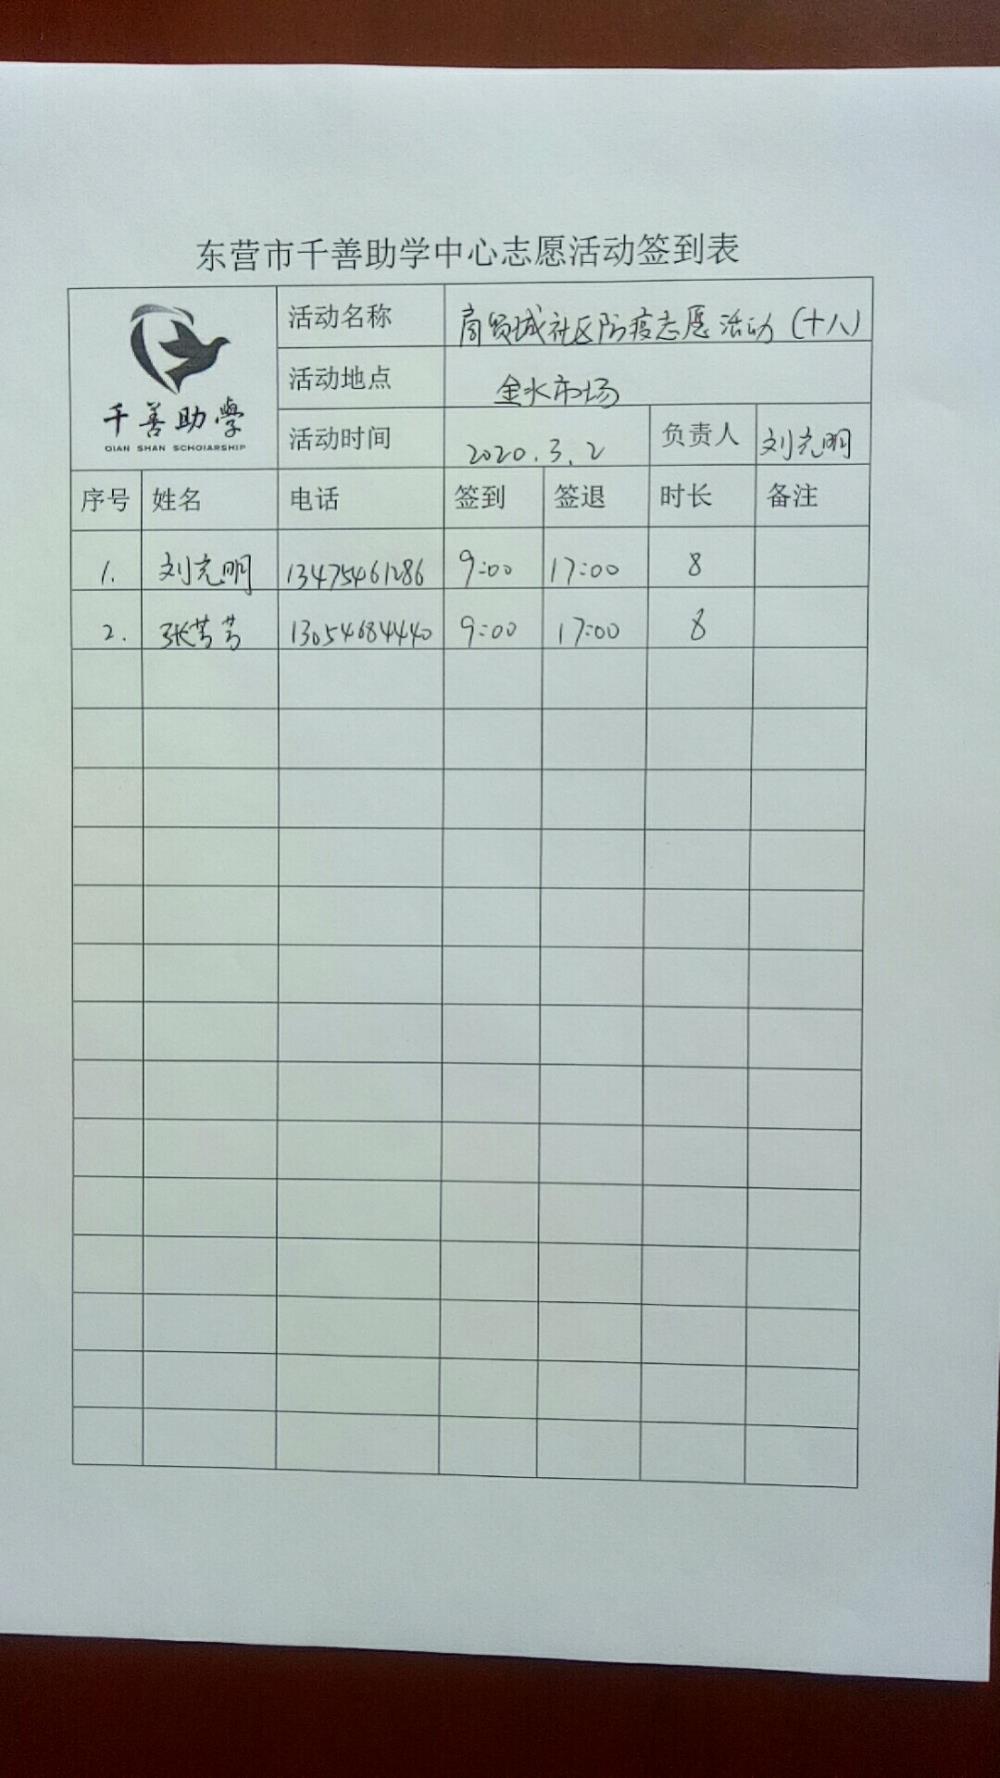 东营市千善助学中心志愿活动签到表
千善助學
QIAN SHAN SCHOLARSHIP
活动名称 商贸城社区防疫志愿活动(十八)
活动地点 金水市场
活动时间 2020.3.2 负责人 刘光明
序号 姓名 电话 签到 签退 时长 备注
1. 刘光明 13475461286 9:00 17:00 8
2. 张芳芳 13054684440 9:00 17:00 8